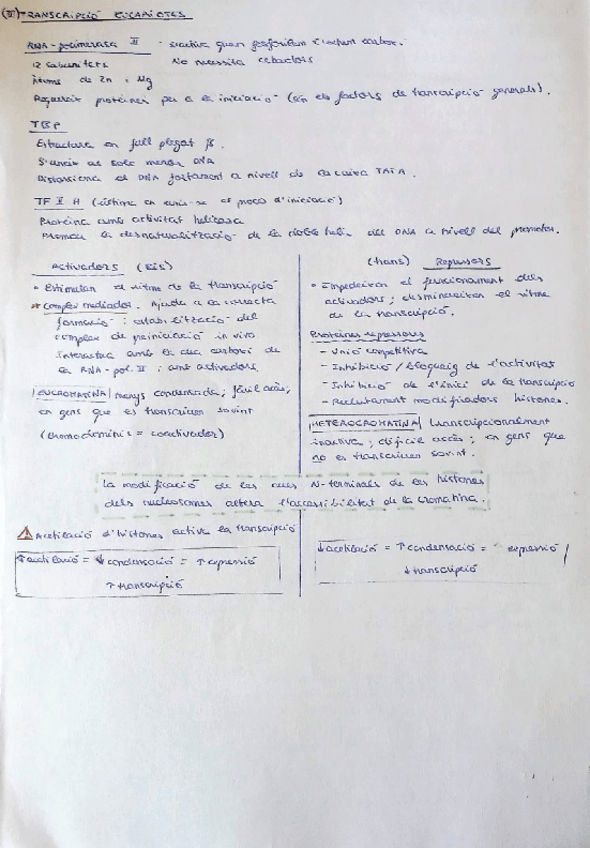 TRANSCRIPCIÓ EUCARIOTES
RNA-polimerasa II - s'activa quan fosforilem l'extrem carbox.
12 subunitats No necessita cebadors
Ions de Zn i Mg
Requereix proteïnes per a la iniciació (són els factors de transcripció generals).
TBP
Estructura en full plegat β.
S'uneix al solc menor DNA
Distorsiona el DNA fortament a nivell de la caixa TATA.
TF II H (última en unir-se al procés d'iniciació)
Proteïna amb activitat helicasa
Promou la desnaturalització de la doble hèlix del DNA a nivell del promotor.
Activadors (cis)
• Estimulen el ritme de la transcripció
* Complex mediador. Ajuda a la correcta
formació i estabilització del
complex de preiniciació in vivo
Interactua amb la cua carboxi de
la RNA-pol. II i amb activadors.
EUCROMATINA menys condensada, fàcil accés,
en gens que es transcriuen sovint
(Bromodominis = coactivador)
(trans) Repressors
• Impedeixen el funcionament dels
activadors i disminueixen el ritme
de la transcripció.
Proteïnes repressores
- Unió competitiva
- Inhibició / bloqueig de l'activitat
- Inhibició de l'inici de la transcripció
- Reclutament modificadors histones.
HETEROCROMATINA transcripcionalment
inactiva, difícil accés, en gens que
no es transcriuen sovint.
La modificació de les cues N-terminals de les histones
dels nucleosomes altera l'accessibilitat de la cromatina.
Acetilació d'histones activa la transcripció
↑ acetilació = ↓ condensació = ↑ expressió
↑ transcripció
↓ acetilació = ↑ condensació = expressió /
↓ transcripció